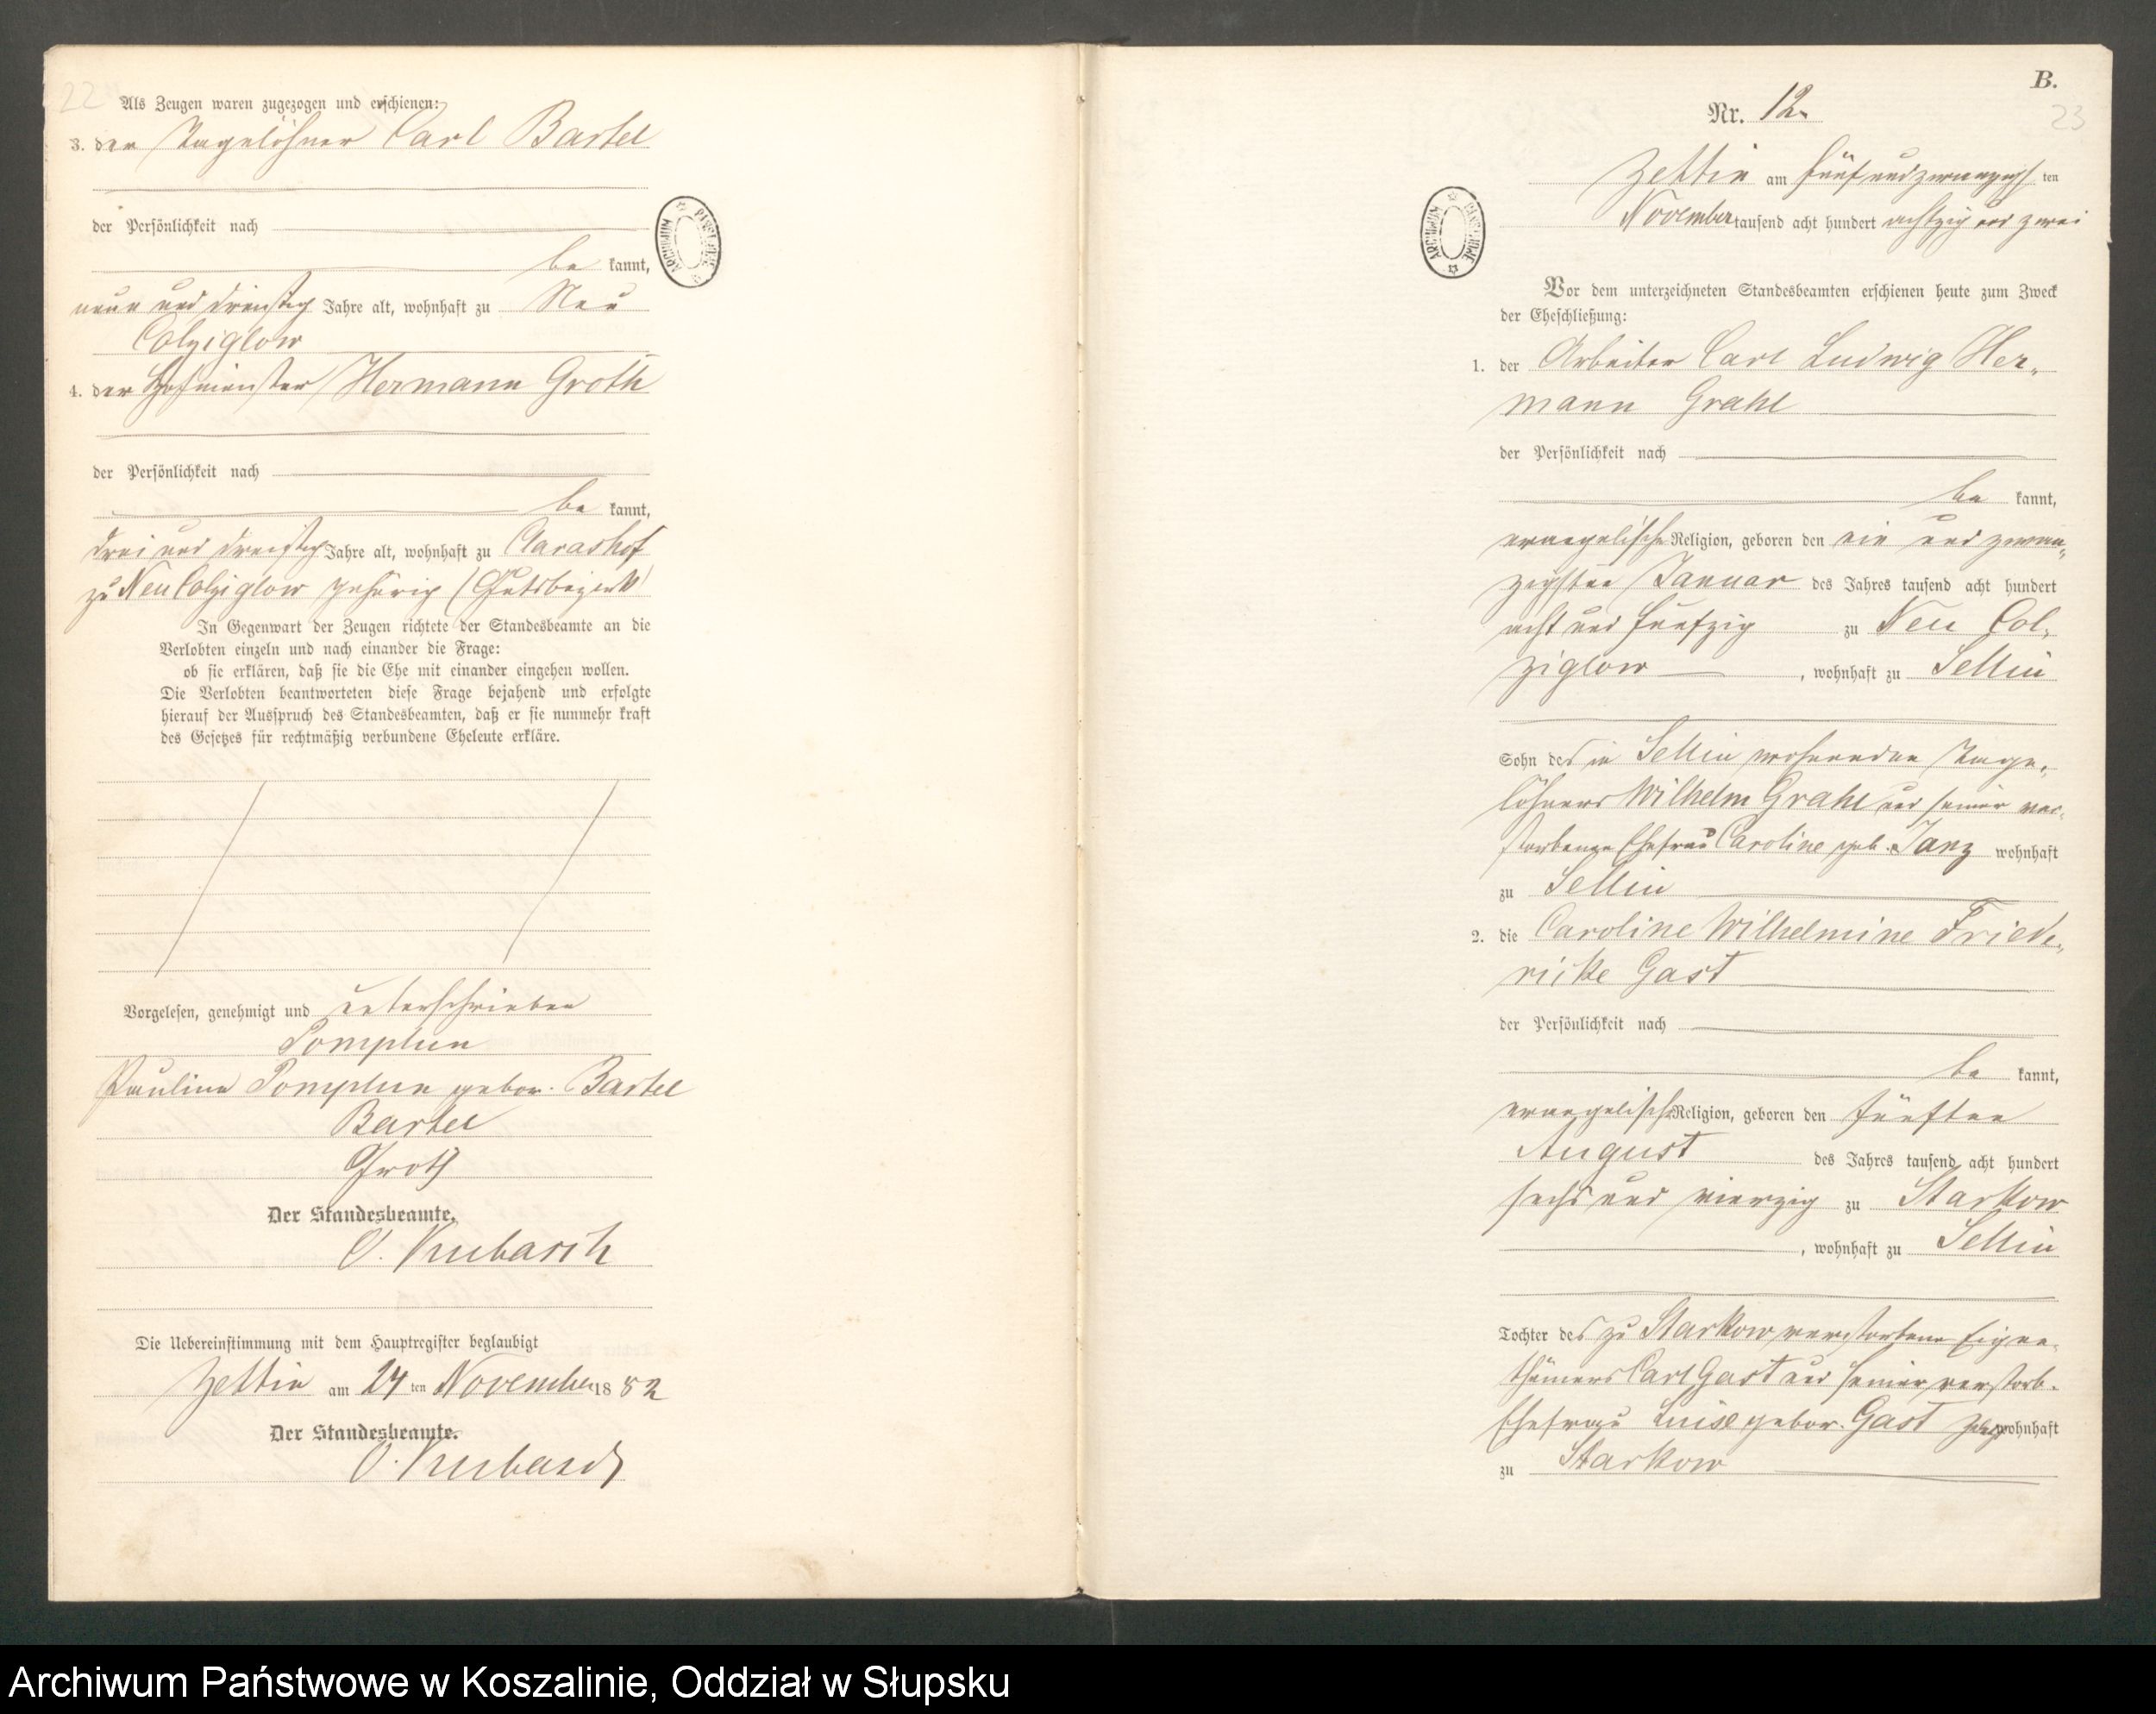 22
Als Zeugen waren zugezogen und erschienen:
3. der Tagelöhner Carl Bartel
der Persönlichkeit nach
be kannt,
neun und dreißig Jahre alt, wohnhaft zu Neu
Colziglow
4. der Hofmeister Hermann Groth
der Persönlichkeit nach
be kannt,
drei und dreißig Jahre alt, wohnhaft zu
zu Neu Colziglow gehörig (Gutsbezirk)
In Gegenwart der Zeugen richtete der Standesbeamte an die
Verlobten einzeln und nach einander die Frage:
ob sie erklären, daß sie die Ehe mit einander eingehen wollen.
Die Verlobten beantworteten diese Frage bejahend und erfolgte
hierauf der Ausspruch des Standesbeamten, daß er sie nunmehr kraft
des Gesetzes für rechtmäßig verbundene Eheleute erkläre.
Vorgelesen, genehmigt und unterschrieben
Pomplun
Pauline Pomplun gebor. Bartel
Bartel
Groth
Der Standesbeamte.
O. Kubasch
Die Uebereinstimmung mit dem Hauptregister beglaubigt
Zettin am 24 ten November 18 82
Der Standesbeamte.
O. Kubasch
ARCHIWUM PAŃSTWOWE
B.
23
Nr. 12.
Zettin am fünfundzwanzigs ten
November tausend acht hundert achtzig und zwei
ARCHIWUM PAŃSTWOWE
Vor dem unterzeichneten Standesbeamten erschienen heute zum Zweck
der Eheschließung:
1. der Arbeiter Carl Ludwig Her-
mann Grahl
der Persönlichkeit nach
be kannt,
evangelischer Religion, geboren den ein und zwan-
zigsten Januar des Jahres tausend acht hundert
acht und fünfzig zu Neu Col-
ziglow , wohnhaft zu Sellin
Sohn des in Sellin wohnenden Tage-
löhners Wilhelm Grahl und seiner ver-
storbenen Ehefrau Caroline geb. Janz wohnhaft
zu Sellin
2. die Caroline Wilhelmine Friede-
ricke Gast
der Persönlichkeit nach
be kannt,
evangelischer Religion, geboren den fünften
August des Jahres tausend acht hundert
sechs und vierzig zu Starkow
, wohnhaft zu Sellin
Tochter des zu Starkow verstorbenen Eigen-
thümers Carl Gast und seiner verstorb.
Ehefrau Luise gebor. Gast wohnhaft
zu Starkow
Archiwum Państwowe w Koszalinie, Oddział w Słupsku